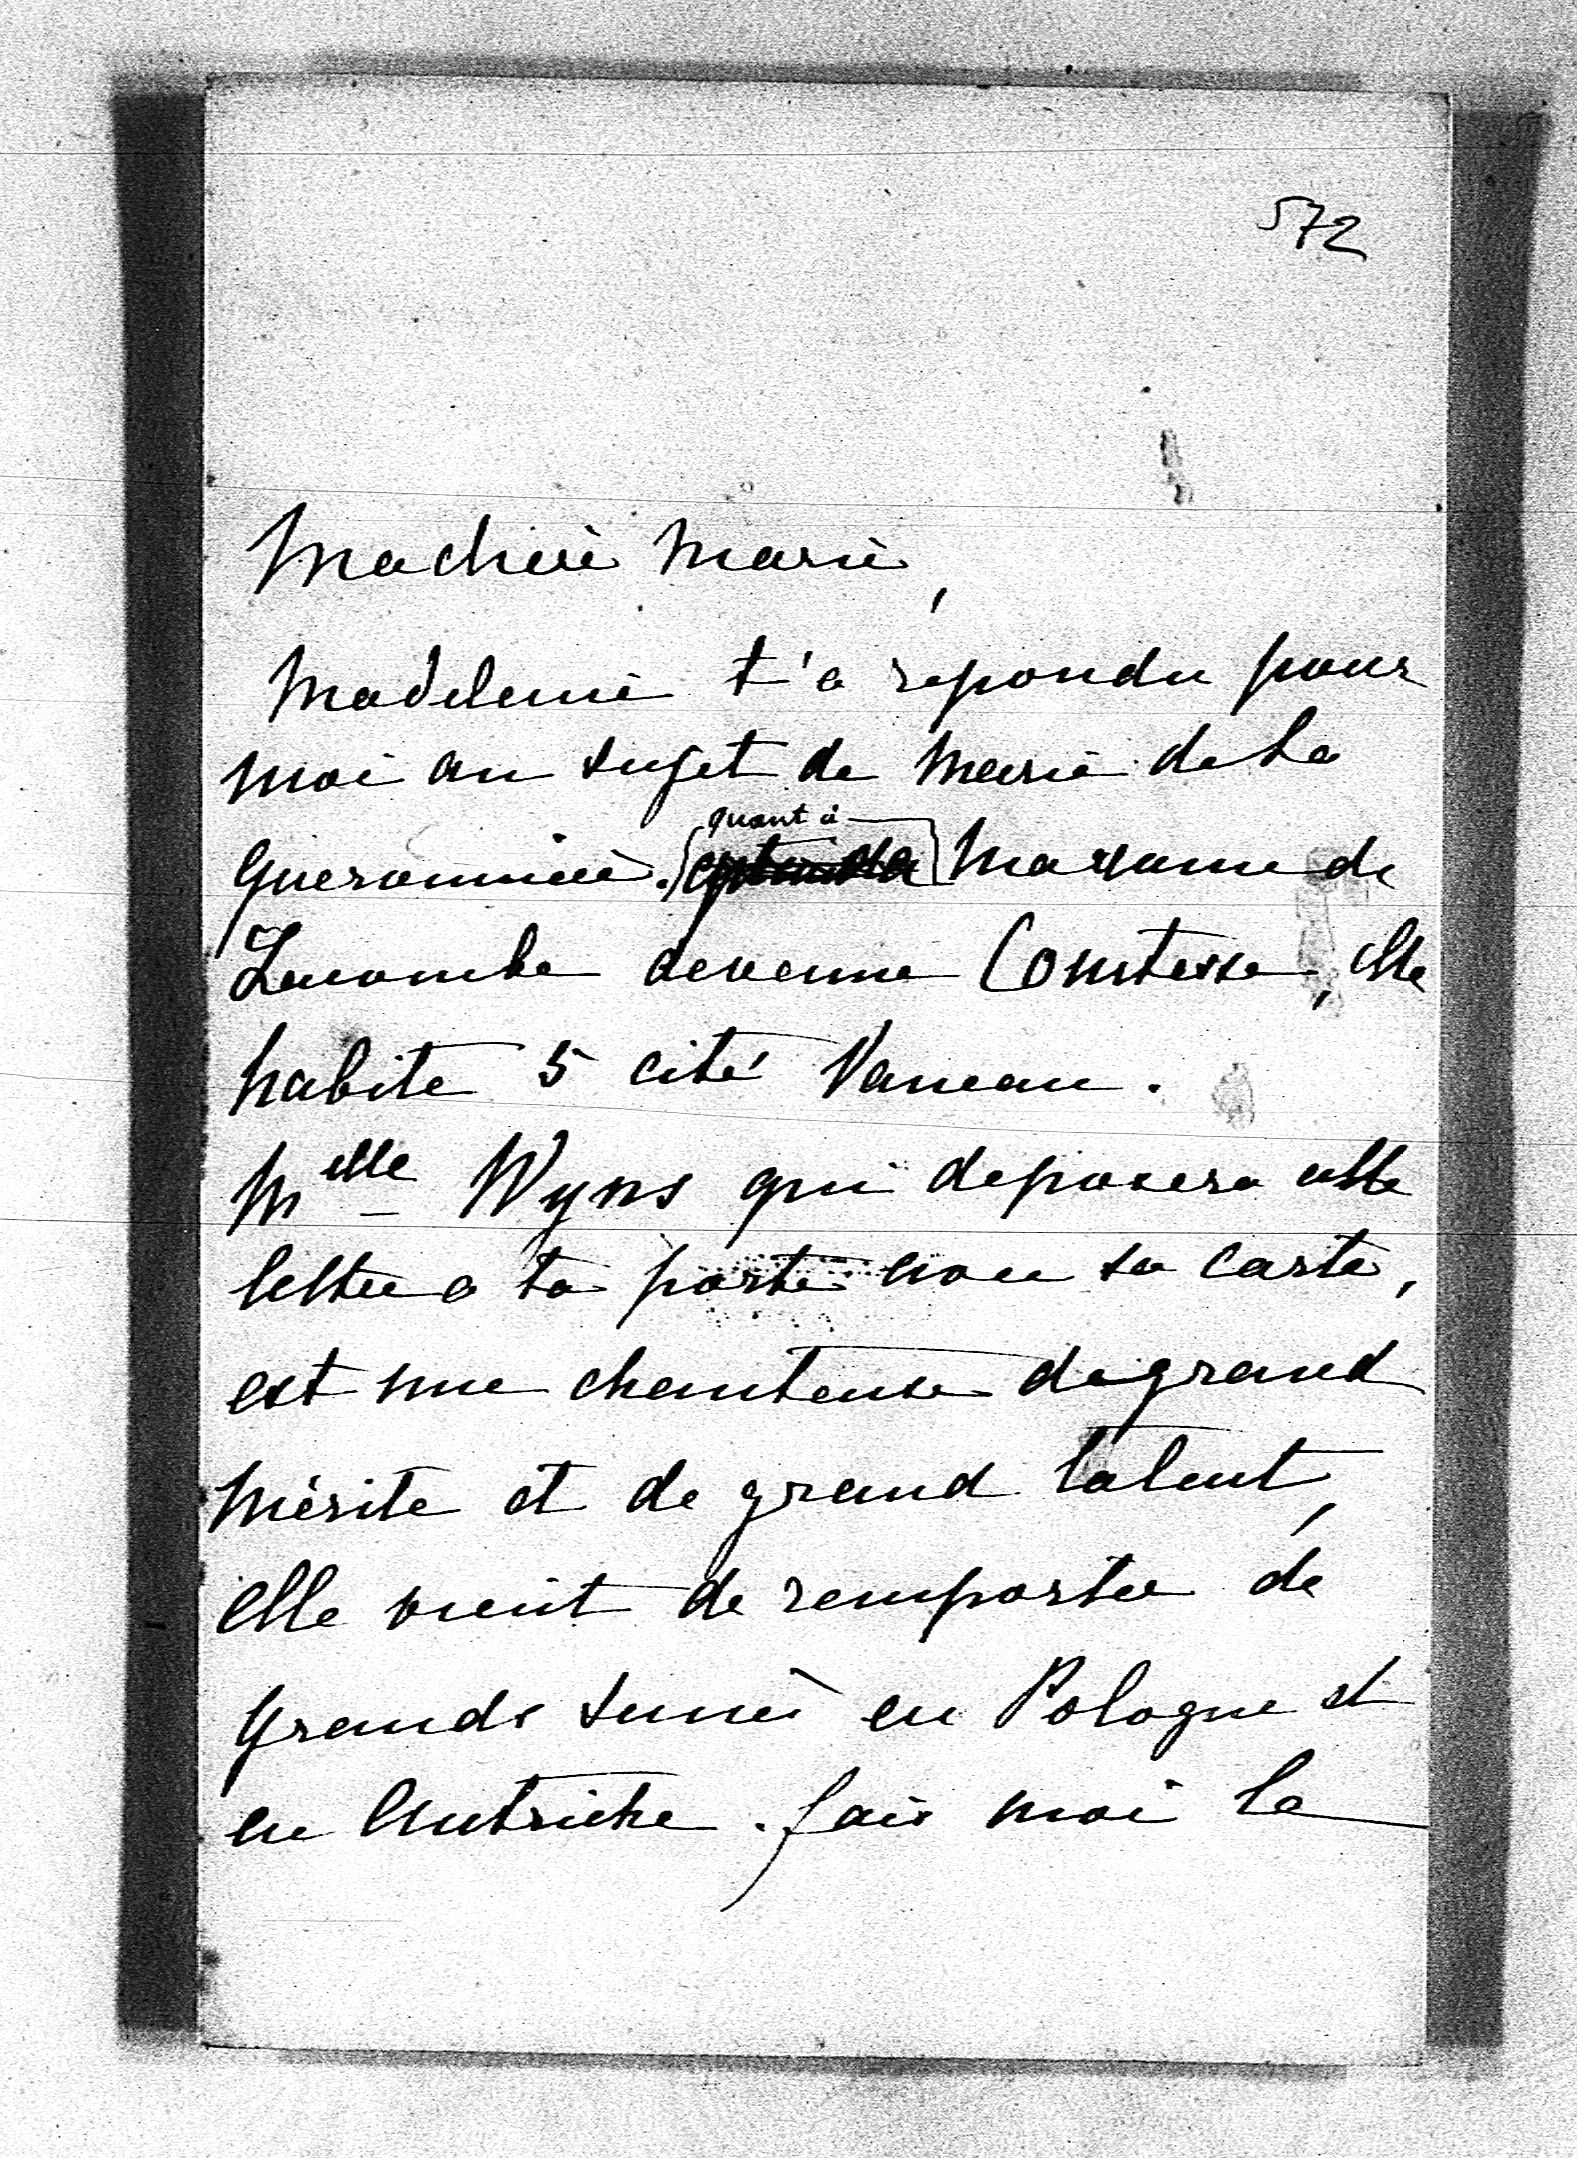 572
Ma chère Marie,
Madeleine t'a repondu pour
moi au sujet de Marie de La
Gueronniere. quant à Madame de
Lacombe devenue Comtesse, elle
habite 5 cité Vaneau.
Melle Wyns qui deposera cette
lettre a ta porte avec sa carte,
est une chanteuse de grand
mérite et de grand talent,
elle vient de remporter de
grands succès en Pologne et
en Autriche. fais moi le